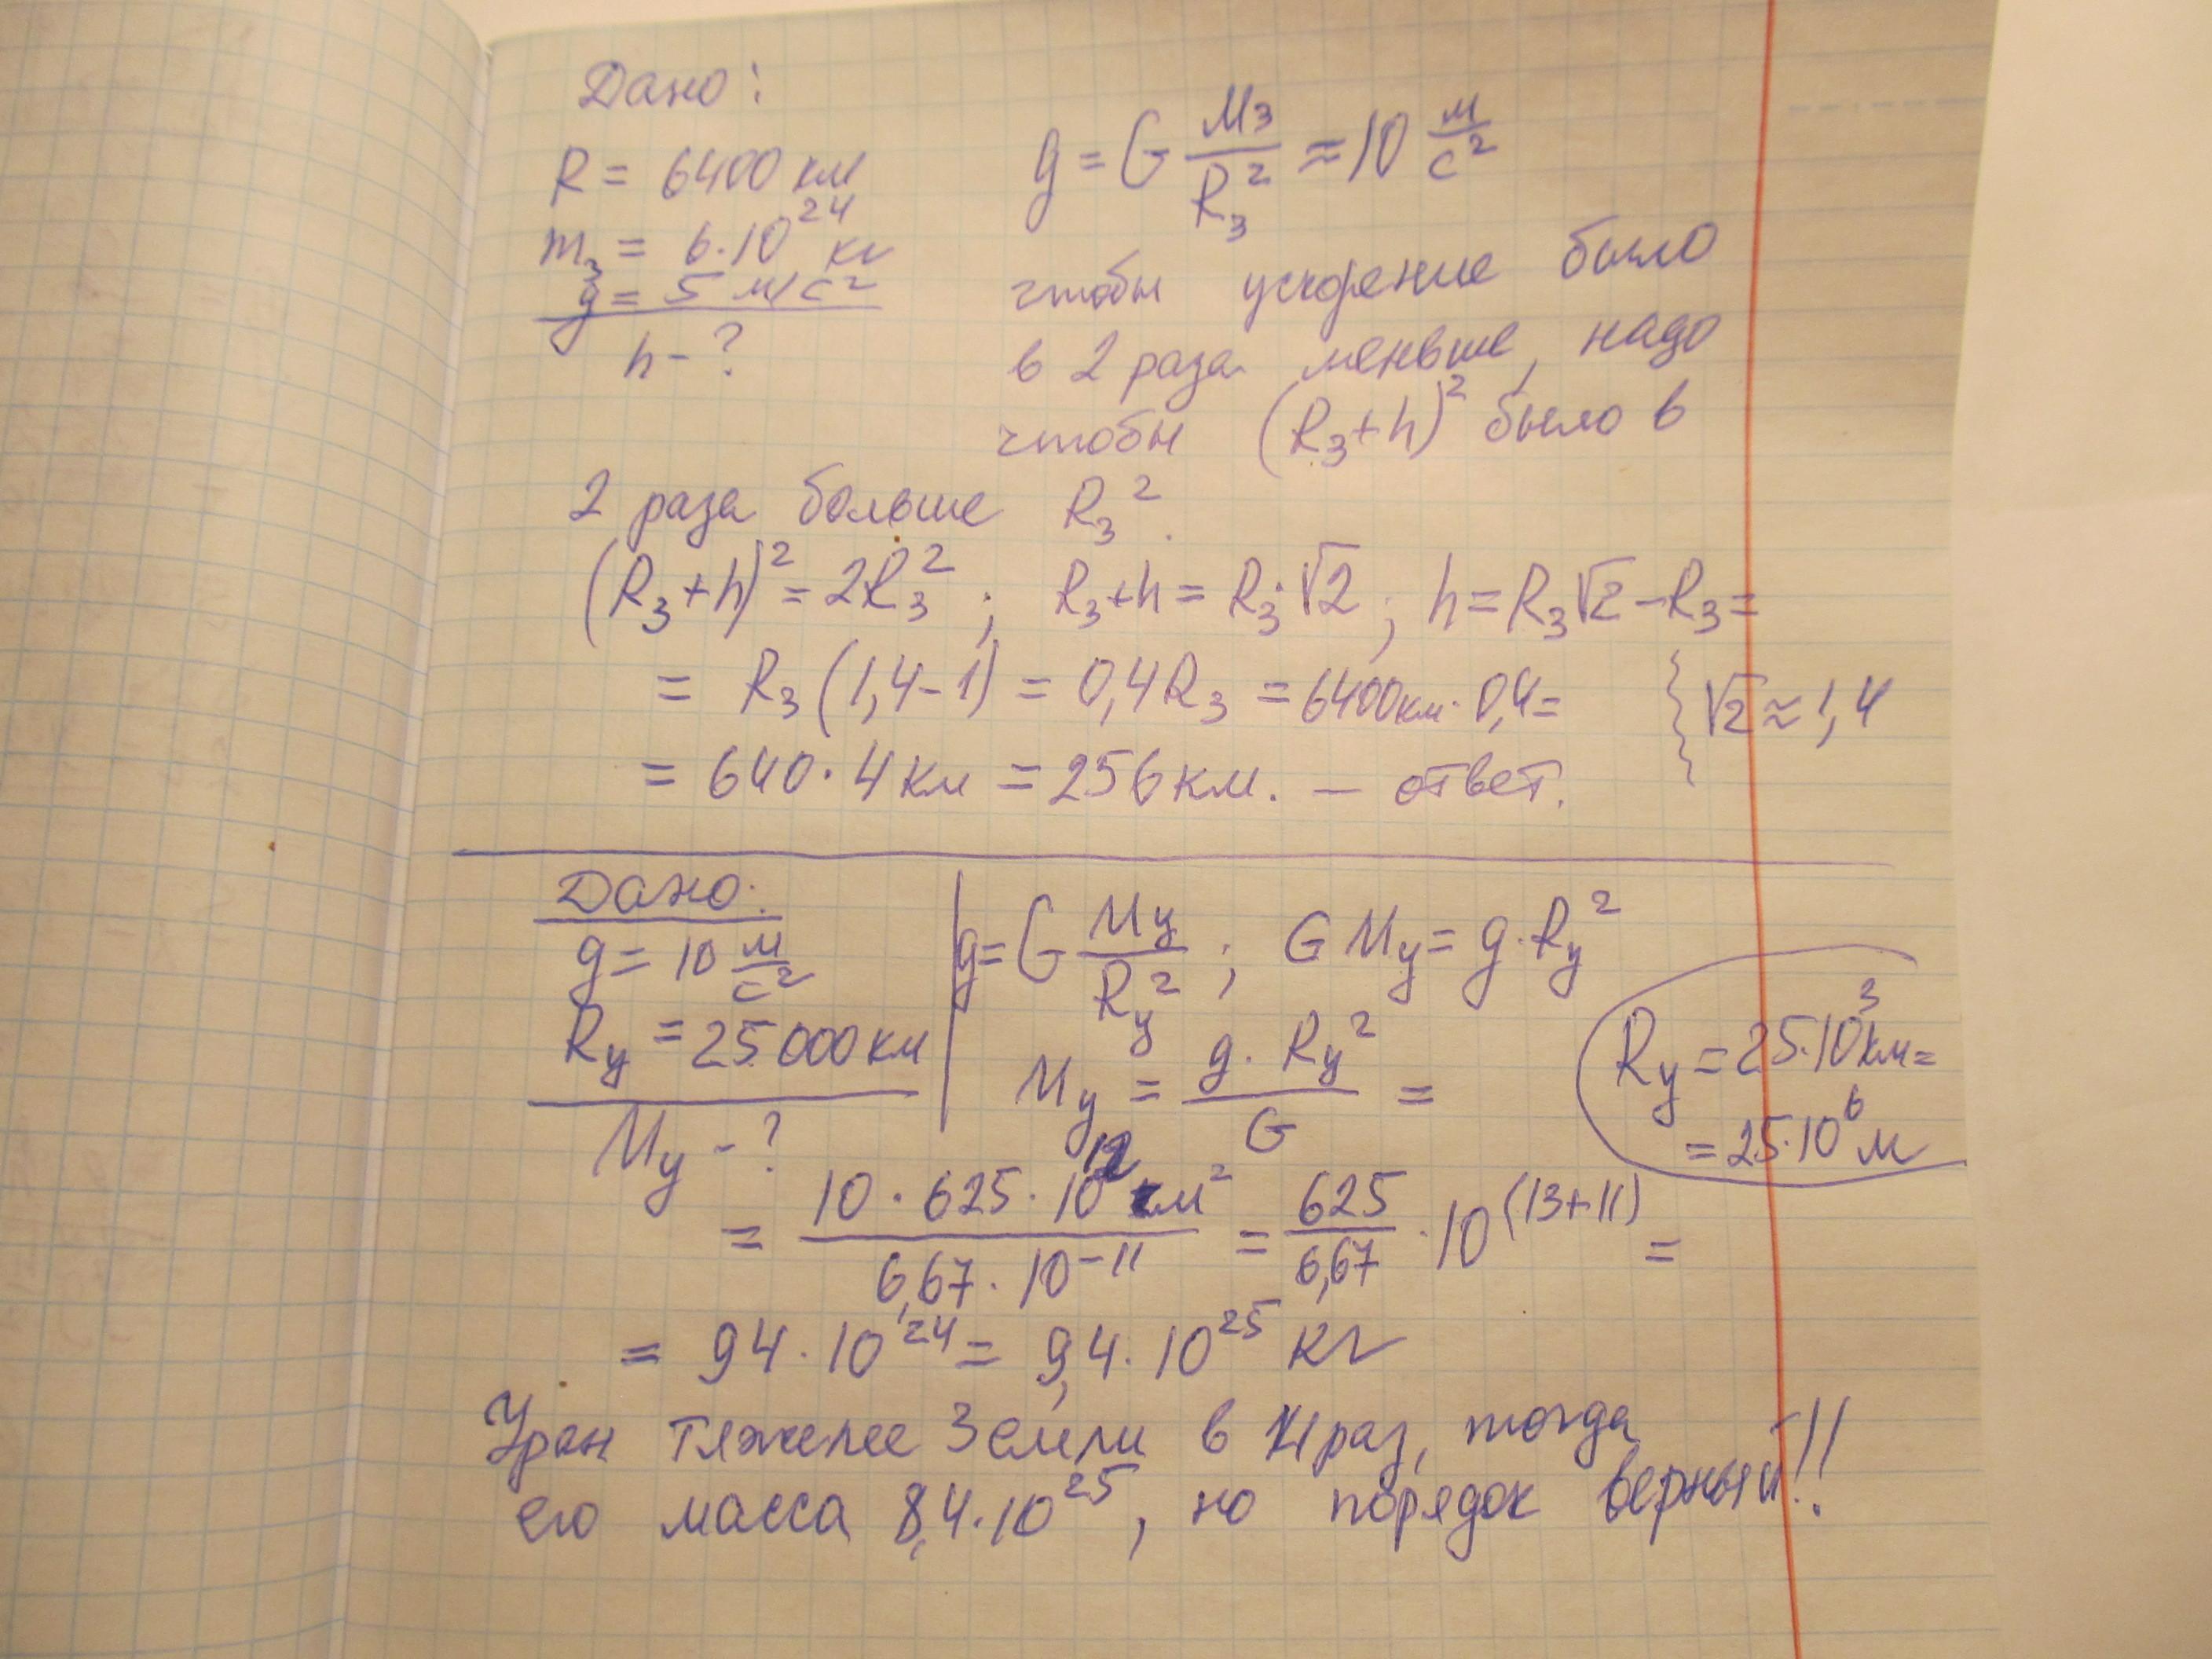 Дано:
R = 6400 км
m₃ = 6·10²⁴ кг
g = 5 м/с²
h - ?
g = G M₃/R₃² ≈ 10 м/с²
чтобы ускорение было
в 2 раза меньше, надо
чтобы (R₃+h)² было в
2 раза больше R₃².
(R₃+h)² = 2R₃² ; R₃+h = R₃·√2 ; h = R₃√2 - R₃ =
= R₃(1,4-1) = 0,4R₃ = 6400км·0,4 =
√2 ≈ 1,4
= 640·4 км = 256 км. — ответ.
Дано:
g = 10 м/с²
Rу = 25000 км
Mу - ?
g = G Mу/Rу² ; G Mу = g·Rу²
Mу = g·Rу²/G =
Rу = 25·10³ км =
= 25·10⁶ м
= 10·625·10¹² м²/6,67·10⁻¹¹ = 625/6,67 ·10⁽¹³⁺¹¹⁾ =
= 94·10²⁴ = 9,4·10²⁵ кг
Уран тяжелее Земли в 14 раз, тогда
его масса 8,4·10²⁵, но порядок верный!!